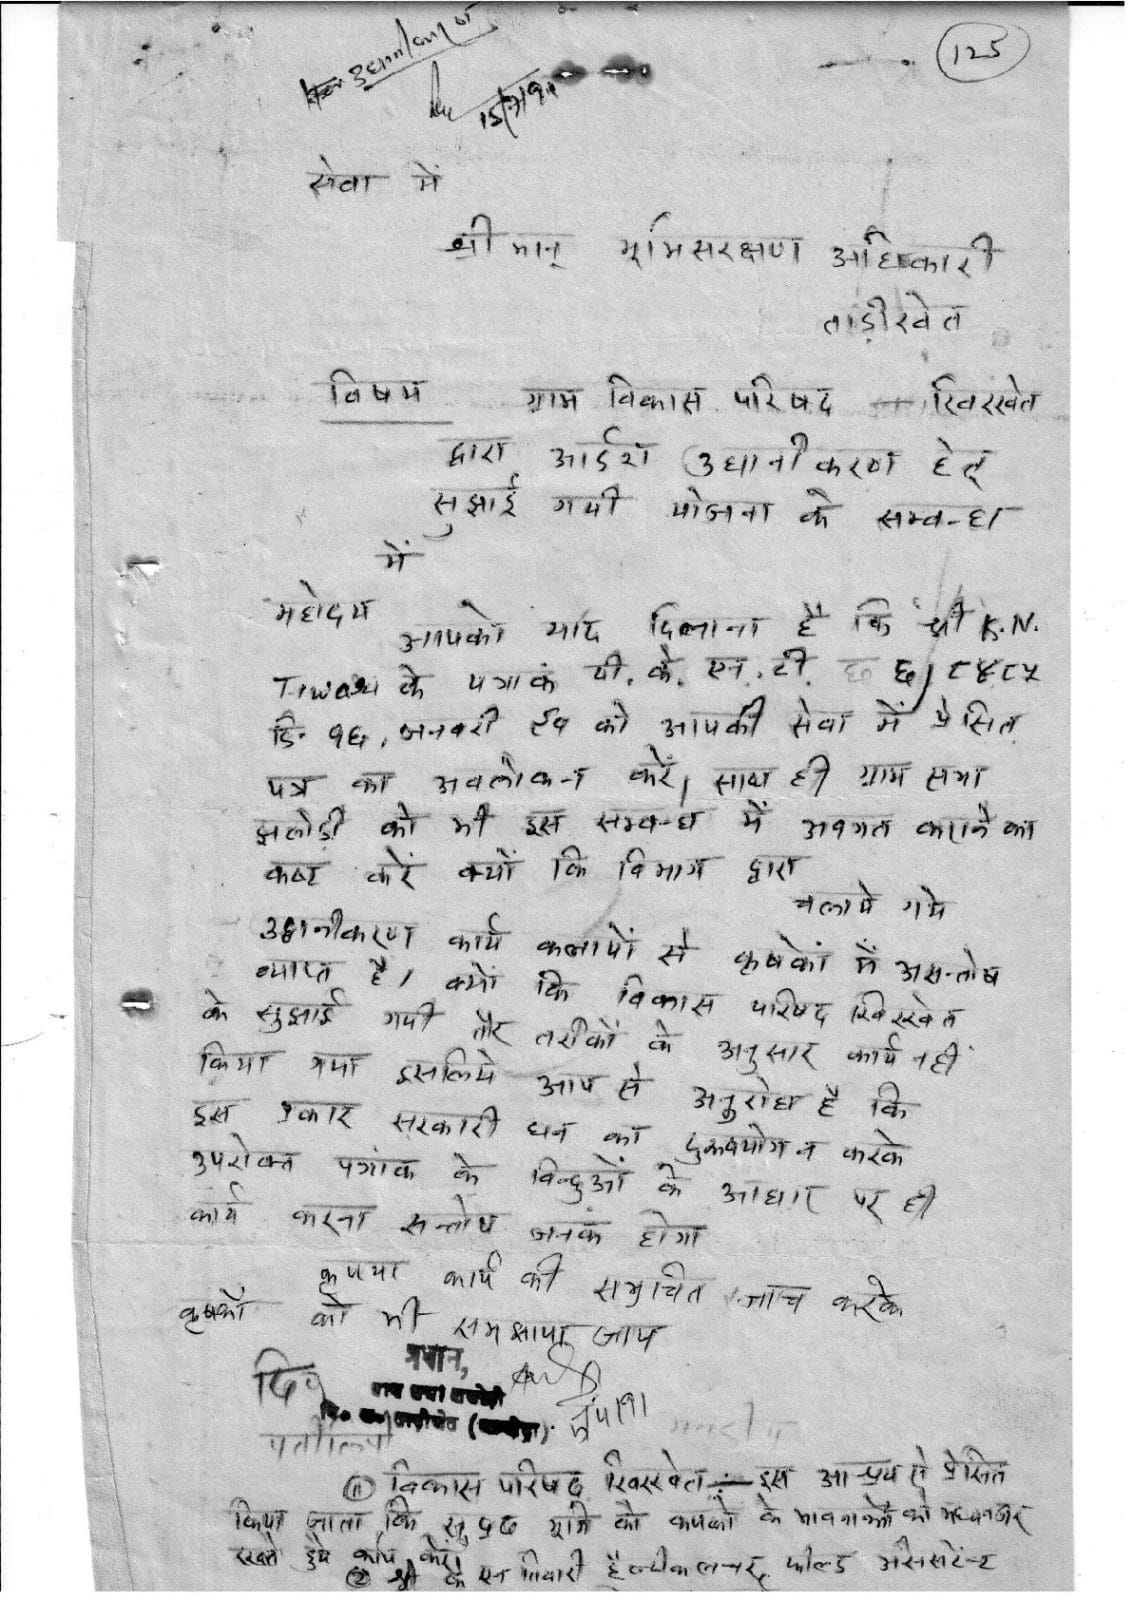 125
15/7/91
सेवा में
श्रीमान् भूमिसरक्षण अधिकारी
ताड़ीखेत
विषय ग्राम विकास परिषद — खिरखेत
द्वारा आर्दश उधानीकरण हेतु
सुझाई गयी योजना के सम्बन्ध
में
महोदय
आपको याद दिलाना है कि श्री K.N.
Tiwari के पत्राकं पी. के. एन. टी. छ ६/८४८५
दि० १६, जनवरी ९१ को आपकी सेवा में प्रेसित
पत्र का अवलोकन करें, साथ ही ग्राम सभा
झलोड़ी को भी इस सम्बन्ध में अवगत कराने का
कष्ट करें क्यों कि विभाग द्वारा
चलाये गये
उद्यानीकरण कार्य कलापों से कृषकों में असन्तोष
व्याप्त है। क्यों कि विकास परिषद खिरखेत
के सुझाई गयी तौर तरीकों के अनुसार कार्य नहीं
किया गया इसलिये आप से अनुरोध है कि
इस प्रकार सरकारी धन का दुरूपयोग न करके
उपरोक्त पत्रांक के बिन्दुओं के आधार पर ही
कार्य करना सन्तोष जनकं होगा
कृपया कार्य की समुचित जाच करके
कृषकों को भी समझाया जाय
प्रधान,
प्रतीलिपी
(1) विकास परिषद खिरखेत :— इस आश्य से प्रेसित
किया जाता कि भूमि को कृषको के भावनाओं को मध्यनजर
रखते हुये कार्य करें।
(2) श्री के एन तिवारी फील्ड असिसटेन्ट